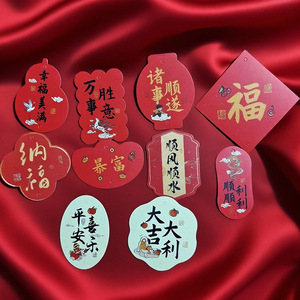 幸福
美满
万事
胜意
诸事
顺遂
福
纳福
恭富
顺风
顺水
顺顺
利利
平安
喜乐
大吉
大利